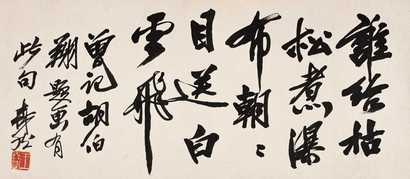 誰拾枯
松煮瀑
布朝〻
目送白
雲飛
曾記胡伯
翔題畫有
此句